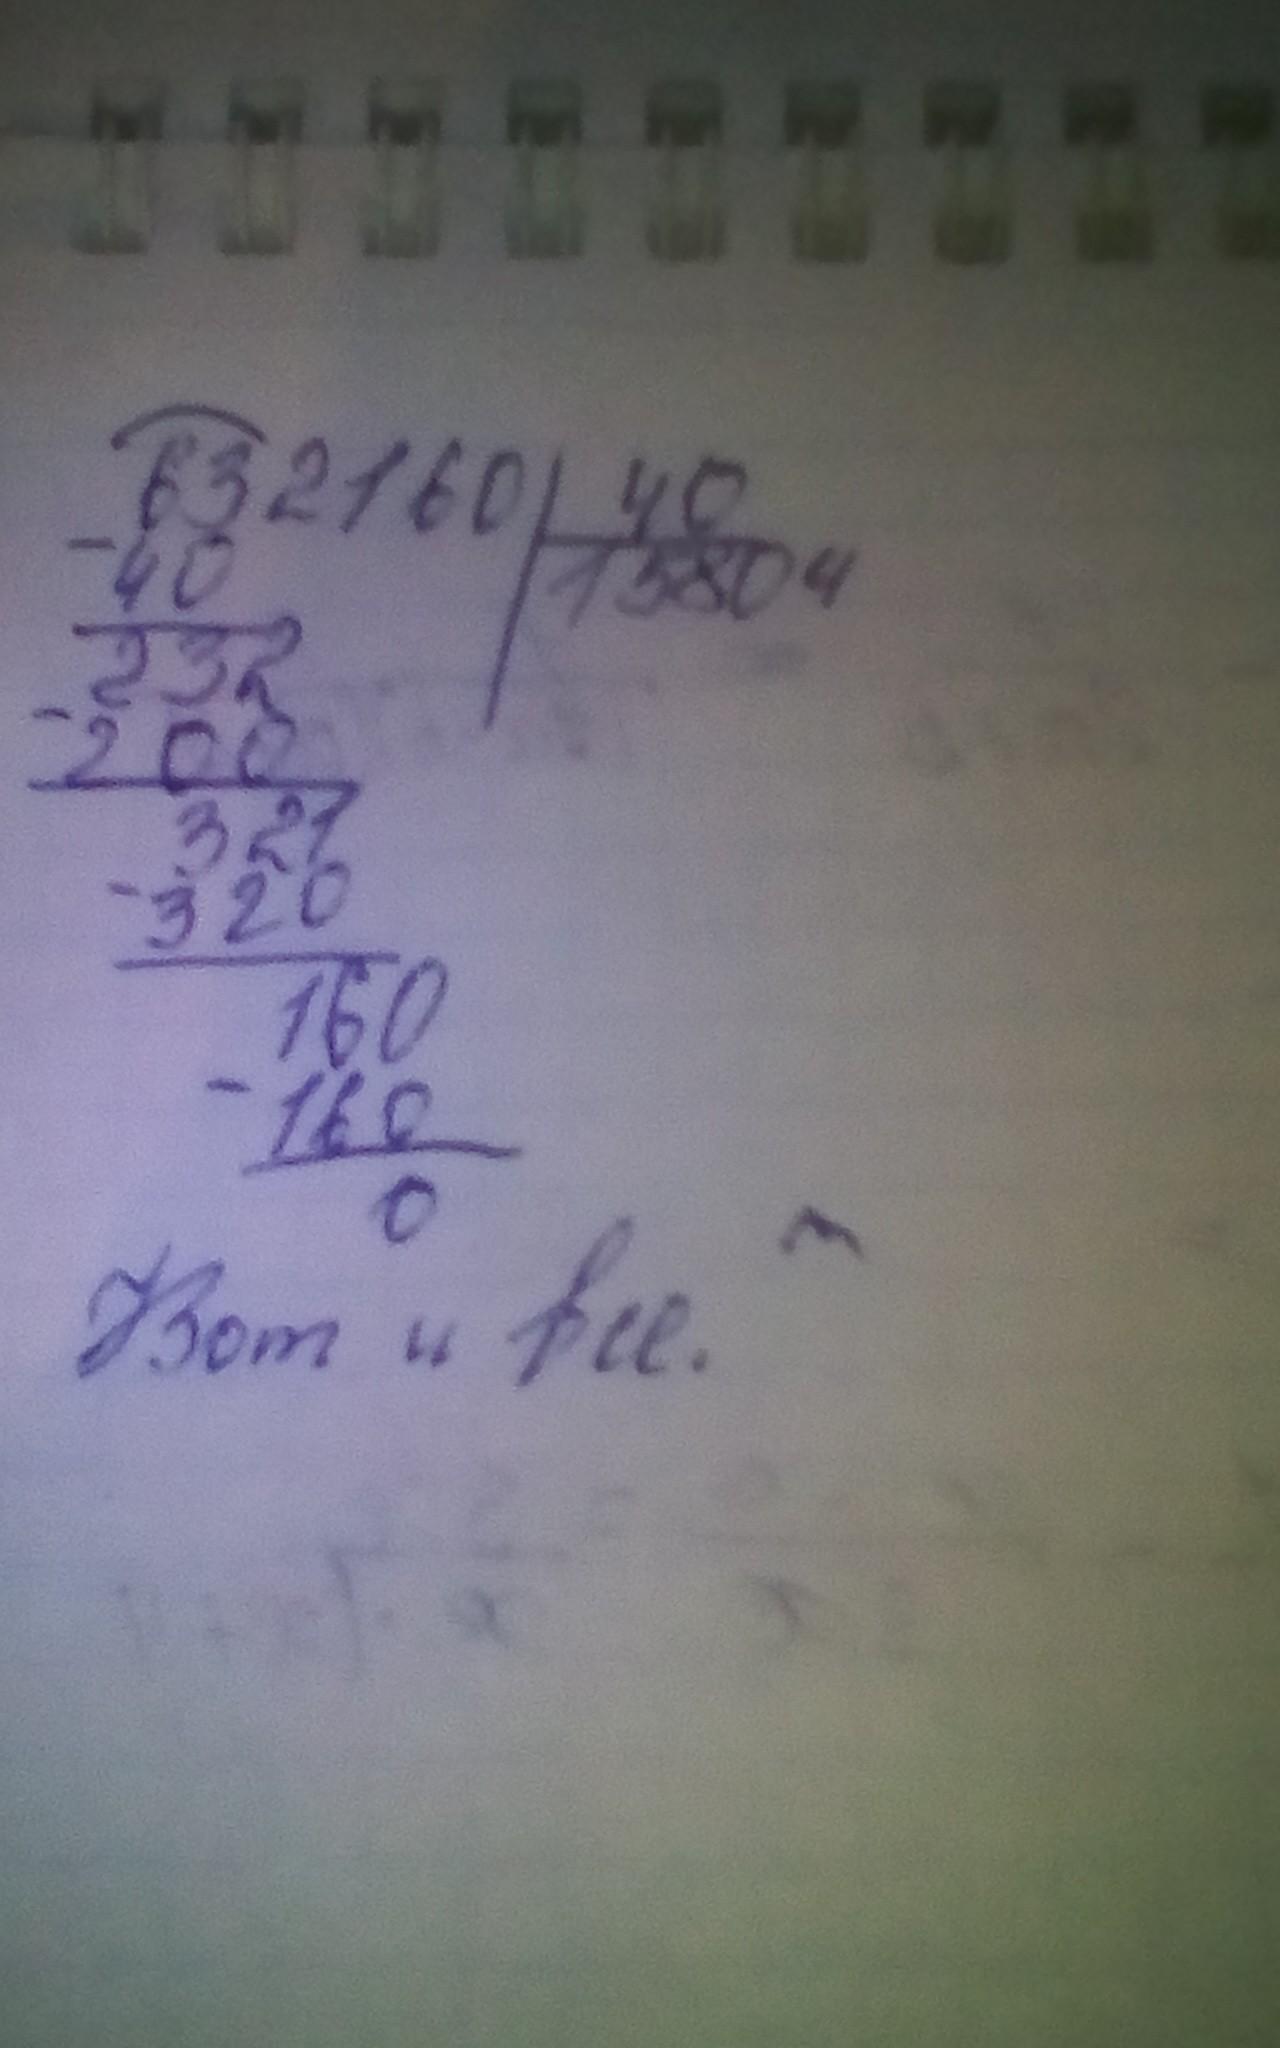 632160 40
- 40 15804
232
- 200
321
- 320
160
- 160
0
Вот и все.